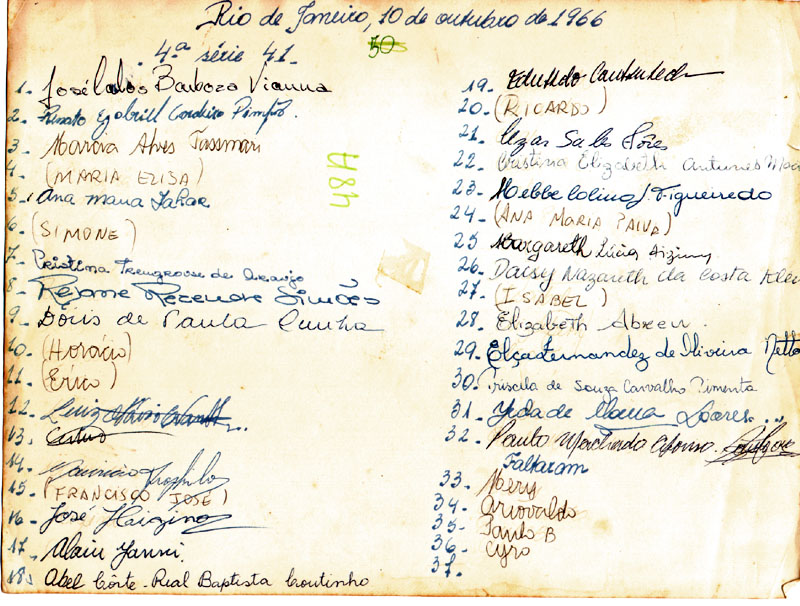 Rio de Janeiro, 10 de outubro de 1966
4ª série 41.
50
48H
1- José Carlos Barboza Vianna
2- Renato Gabriel Cordeiro Pimpo.
3- Marova Alves Tassman
4- (MARIA ELISA)
5- Ana maria
6- (SIMONE)
7- Cristina de Araujo
8- Rejane Rezende Simões
9- Dóris de Paula Cunha
10- (Horácio)
11- (Érico)
12- Luiz
13-
14- Mauricio
15- (FRANCISCO JOSÉ)
16- José Higino
17- Alain Yanni.
18- Abel Côrte-Real Baptista Coutinho
19- Eduardo
20- (RICARDO)
21- Sales
22- Cristina Elizabeth Antunes
23- Hebbe J. Figueiredo
24- (ANA MARIA PAIVA)
25 Margareth Lúcia
26- Daisy Nazareth da Costa
27- (ISABEL)
28- Elizabeth Abreu.
29- Elça Fernandez de Oliveira Netto
30- Priscila de Souza Carvalho Pimenta
31- Yeda de Soares...
32- Paulo Machado Afonso.
Faltaram
33- Mery
34- Ariovaldo
35- Paulo B
36- Cyro
37-